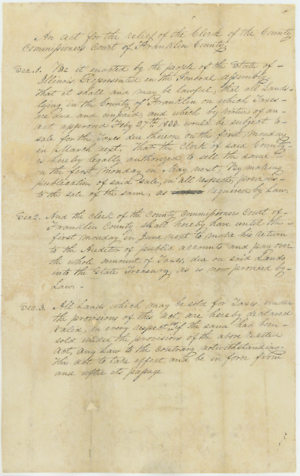 An act for the relief of the Clerk of the County
Commissioners Court of Franklin County.
Sec. 1. Be it enacted by the people of the State of
Illinois Represented in the General Assembly
That it shall and may be lawful, that all Lands
lying in the County of Franklin on which Taxes
are due and unpaid, and which by virtue of an
act approved Feby 27th 1833 would be subject to
sale for the Taxes due thereon on the first Monday
in March next, That the Clerk of said County
is hereby legally authorized to sell the same
on the first monday in May next, By making
publication of such Sale, in all respects, previous
to the sale of the same, as required by Law.
Sec 2. And the clerk of the County Commissioners Court of
Franklin County shall hereby have until the
first monday in June next to make his return
to the Auditor of public accounts and pay over
the whole amount of Taxes due on said Lands
into the State Treasury, as is now provided by
Law.
Sec 3. All Lands which may be sold for Taxes under
the provisions of this act are hereby declared
valid, in every respect as if the same had been
sold under the provisions of the above recited
Act, any Law to the contrary notwithstanding.
This act to take effect and be in force from
and after its passage